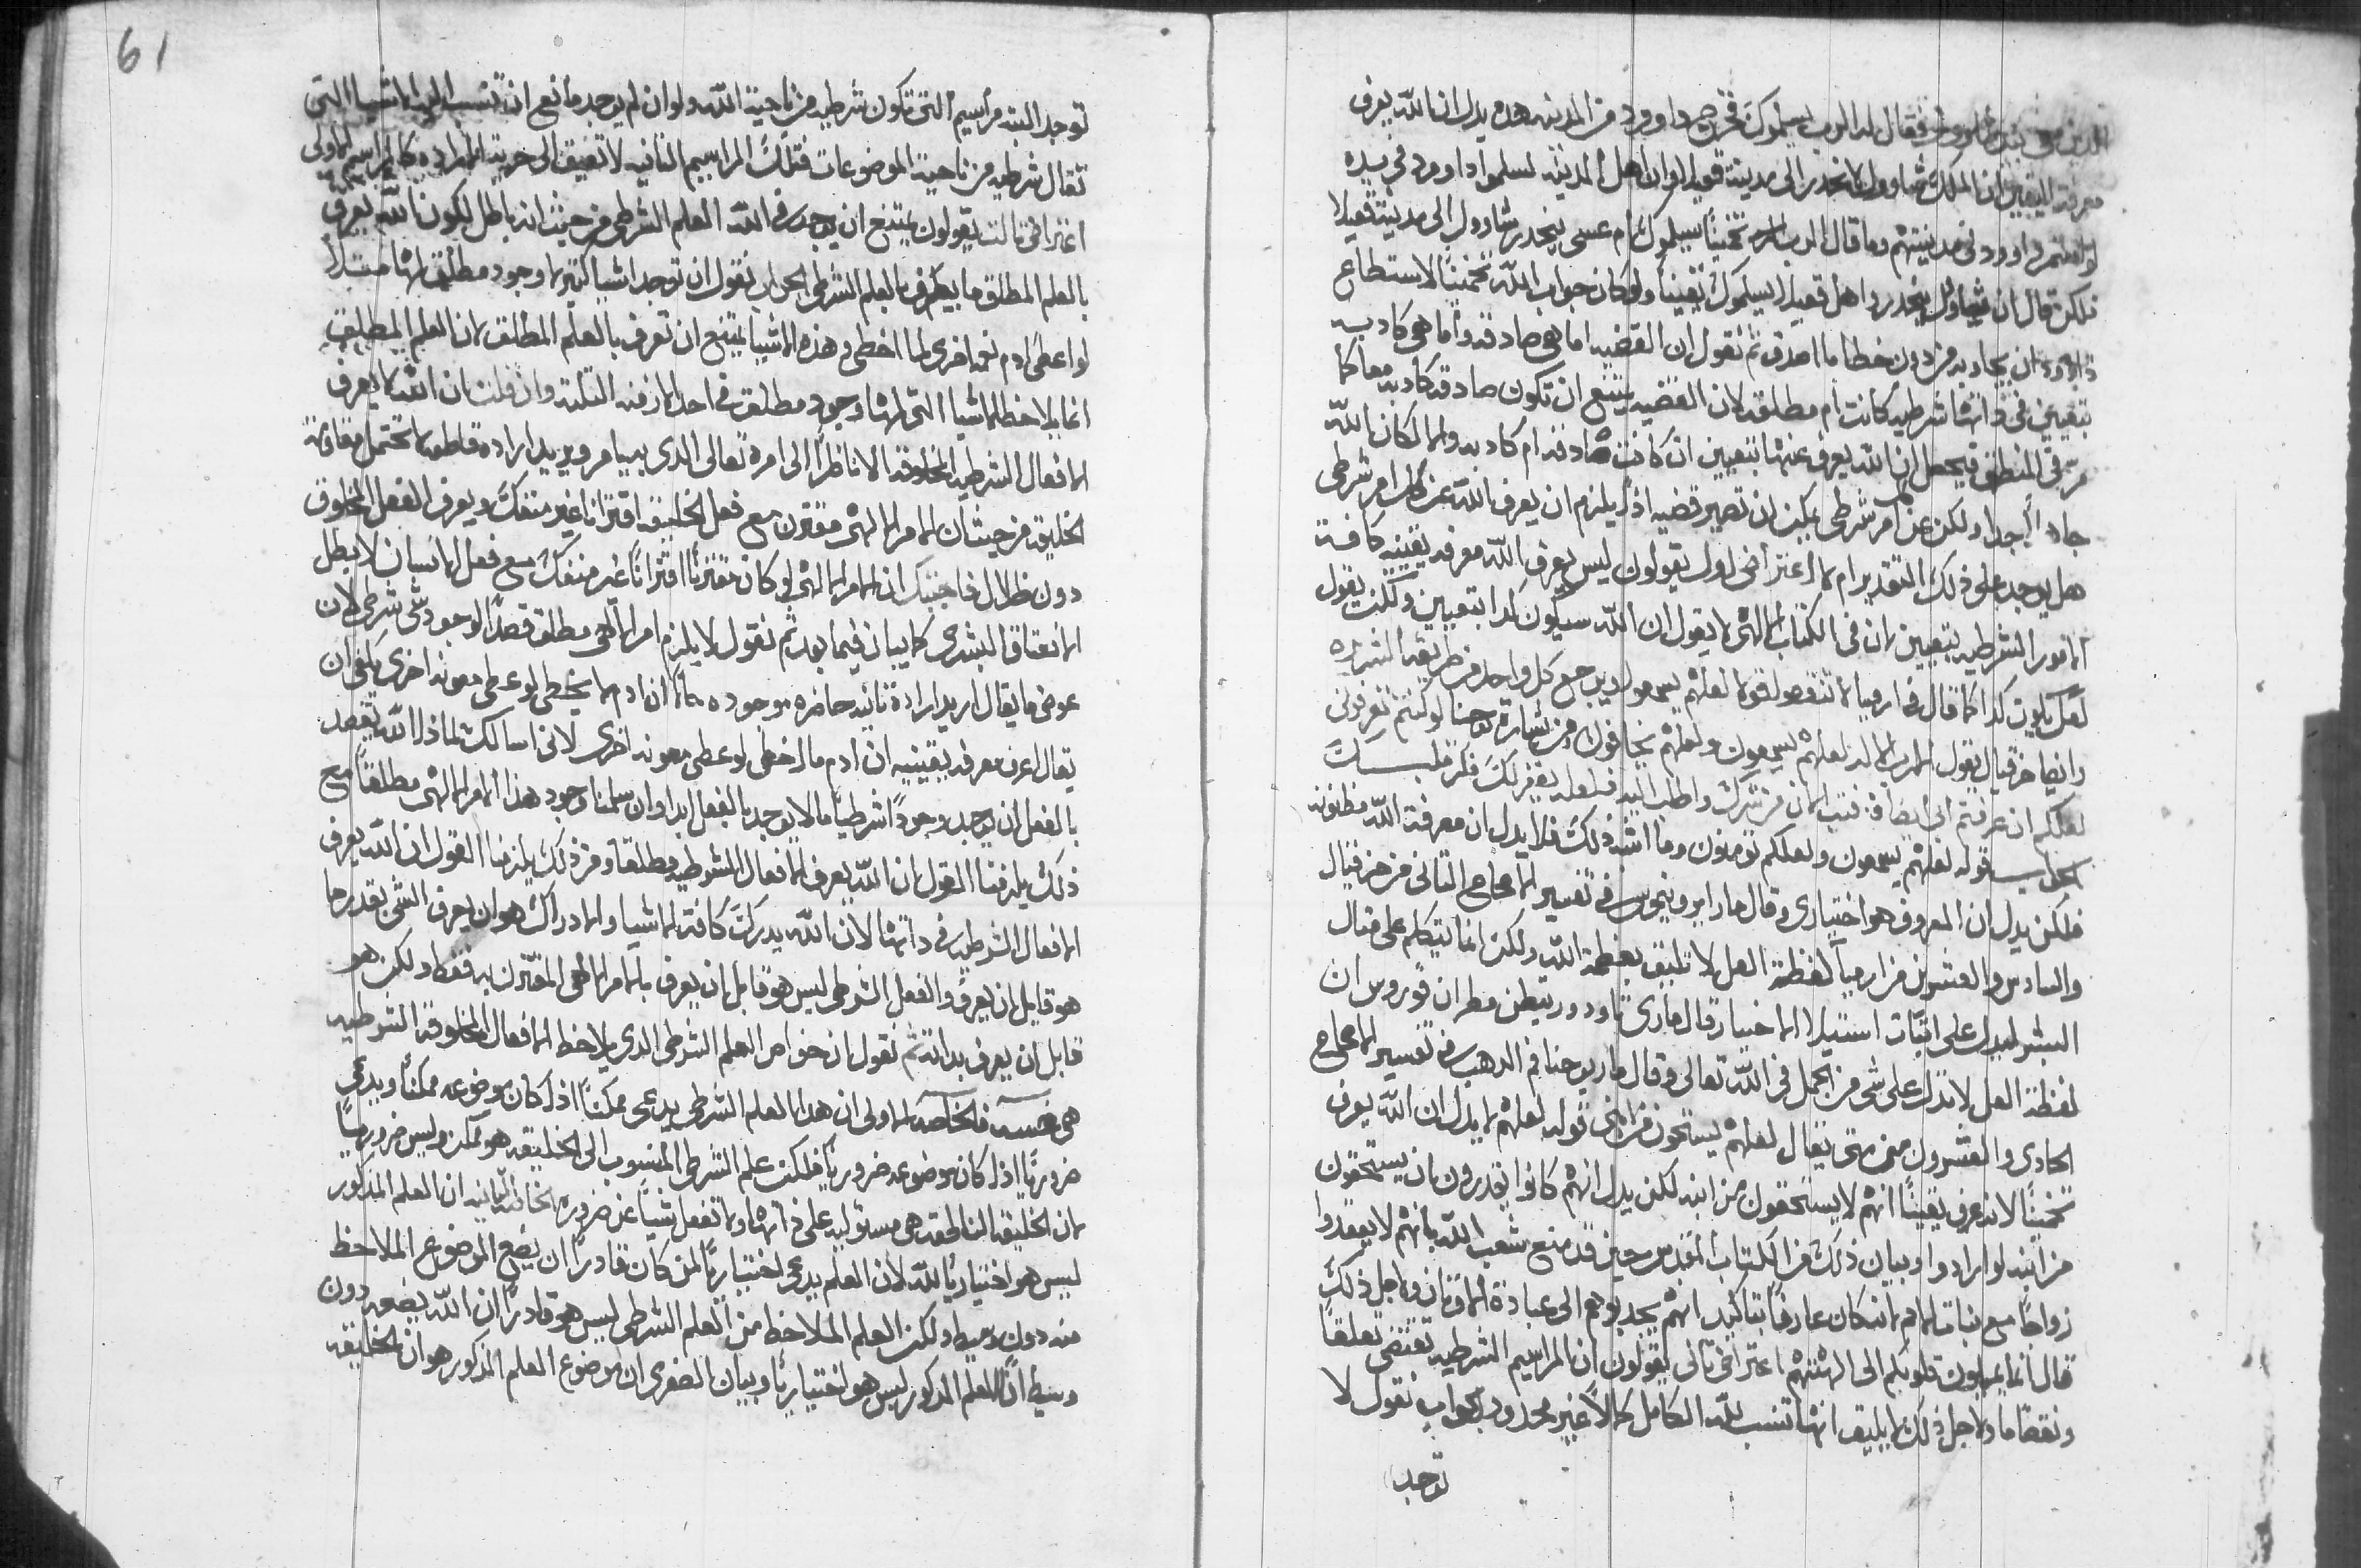 الذين معي بيد شاوول فقال له الرب يسلموك فخرج داوود من المدينه هذه يدل ان الله يعرف
معرفة اليقين ان الملك شاوول لا ينحدر الى مدينة قعيلا وان اهل المدينه لسلموا داوود في يده
لو استمر داوود في مدينتهم وما قال الرب له تخميناً سيلموك ام عسى ينحدر شاوول الى مدينة قعيلا
لكن قال ان شاوول ينحدر واهل قعيلا يسلموك يقيناً ولو كان جواب الله تخميناً لاستطاع
داوود ان يجاوبه من دون خطا ما اصدق ثم نقول ان القضيه اما هي صادقه واما هي كادبه
بتعيين في ذاتها شرطيه كانت ام مطلقه لان القضيه يمتنع ان تكون صادقه كادبه معا كما
مرّ في المنطق فيحصل ان الله يعرف عنها بتعيين ان كانت صادقه ام كادبه والا لكان الله
جاهلاً جدا ولكن عن كل امر شرطي يمكن ان تصير قضيه اذاً يلزم ان يعرف الله عن كل امر شرطي
هل يوجد على ذلك التقدير ام لا اعتراض اول يقولون ليس يعرف الله معرفه يقينيه كافة
الامور الشرطيه بتعيين لان في الكتاب الالهي لا يقول ان الله سيكون كدا بتعيين ولكنه يقول
لعل يكون كدا كما قال في ارميا لا تنقص قولا لعلهم يسمعوا ويرجع كل واحد من طريقه الشريره
وايضا حزقيال يقول الرب الاله لعلهم يسمعون ولعلهم يخافون ومن بشارة يوحنا لو كنتم تعرفوني
لعلكم ان عرفتم ابي ايضا فتب الان من شرك واطلب اليه فلعله يغفر لك فكر قلبك
الجواب قوله لعلهم يسمعون ولعلكم تومنون وما اشبه ذلك فلا يدل ان معرفة الله مظنونه
فلكن يدل ان المعروف هو اختياري وقال مار ايرونيموس في تفسير الاصحاح التاني من حزقيال
والسادس والعشرين من ارميا لفظة لعل لا تليق بعظمة الله ولكن انما يتكلم على مثال
البشر ليدل على اثبات استيلا الاختيار قال ماري تاودوريطس مطران قوروس ان
لفظة لعل لا تدل على شي من الجهل في الله تعالى وقال مار يوحنا فم الدهب في تفسير الاصحاح
الحادي والعشرون من متى يقال لعلهم يستحون من ابني قوله لعلهم لا يدل ان الله يعرف
تخميناً لانه عرف يقيناً انهم لا يستحقون من ابنه لكن يدل انهم كانوا يقدرون ان يستحقون
من ابنه لو ارادوا وبيان ذلك من الكتاب المقدس حين قد منع شعب الله بانهم لا يعقدوا
زواجاً مع بنات الامم لانه كان عارفاً بتاكيد انهم يجدبوهم الى عبادة الاوثان ولاجل ذلك
قال انما يميلون قلوبكم الى الهتهم اعتراض تاني يقولون ان المراسيم الشرطيه تقتضي تعلقاً
ونقصاً ما ولاجل ذلك لا يليق انها تنسب لله الكامل كمالاً غير محدود الجواب نقول لا
توجد
61
توجد البته مراسيم التي تكون شرطيه من ناحية الله ولو ان لم يوجد مانع ان تنسب اليه الاشيا التي
تقال شرطيه من ناحية الموضوعات فتلك المراسيم التانيه لا تضيق الى حرية الاراده كالمراسيم الاولى
اعتراض تالت يقولون يمتنع ان يوجد في الله العلم الشرطي من حيث انه باطل لكون الله يعرف
بالعلم المطلق ما يعرف بالعلم الشرطي الجواب نقول ان توجد اشيا كتيره لا وجود مطلق لها مثلاً
لو اعطي ادم نعمه اخرى لما اخطى وهذه الاشيا يمتنع ان تعرف بالعلم المطلق لان العلم المطلق
انما يلاحظ الاشيا التي لها وجود مطلق في احد الازمنه التلته وان قلت ان الله لا يعرف
الافعال الشرطيه المخلوقه الا ناظراً الى امره تعالى الذي به يامر ويريد اراده قاطعه لا تحتمل مفارقة
الخليقه من حيث ان الامر الالهي مقترن مع فعل الخليقه اقتراناً غير منفك ويعرف الفعل المخلوق
دون ظلال فاجبتك ان الامر الالهي لو كان مقترناً اقتراناً غير منفك مع فعل الانسان لابطل
الانعتاق البشري كما يبان فيما بعد ثم نقول لا يلزم امر الهي مطلق قصداً لوجود شي شرطي لان
عوض ما يقال اريد ارادة تانيه حاضره موجوده حالاً ان ادم لا يخطي لو عطي معونه اخرى يكفي ان
يقال اعرف معرفه يقينيه ان ادم ما اخطى لو عطي معونه اخرى لاني اسالك لماذا الله يقصد
بالفعل ان يوجد وجوداً شرطياً ما لا يوجد بالفعل ابداً وان سلمنا وجود هذا الامر الالهي مطلقاً مع
ذلك يلزمنا القول ان الله يعرف الافعال الشرطيه مطلقا ومن ذلك يلزمنا القول ان الله يعرف
الافعال الشرطيه في داتها لان الله يدرك كافة الاشيا والادراك هو ان يعرف الشي بقدر ما
هو قابل ان يعرف والفعل الشرطي ليس هو قابل ان يعرف بالامر الالهي المقترن به فقط ولكن هو
قابل ان يعرف بداته ثم نقول ان خواص العلم الشرطي الدي يلاحظ الافعال المخلوقه الشرطيه
هي خمسة فالخاصة الاولى ان هدا العلم الشرطي يدعى ممكناً اذا كان موضوعه ممكناً ويدعى
ضرورياً اذا كان موضوعه ضرورياً فلكن علم الشرطي المنسوب الى الخليقه هو ممكن وليس ضرورياً
لان الخليقه الناطقه هي مستوليه على ذاتها ولا تفعل شيئاً عن ضروره الخاصة التانيه ان العلم المذكور
ليس هو اختيارياً لله لان العلم يدعى اختيارياً لمن كان قادراً ان يضع الموضوع الملاحظ
منه دون وسيط ولكن العلم الملاحظ من العلم الشرطي ليس هو قادراً ان الله يضعه دون
وسيط اذاً العلم المذكور ليس هو اختيارياً وبيان الصغرى ان موضوع العلم المذكور هو ان الخليقه